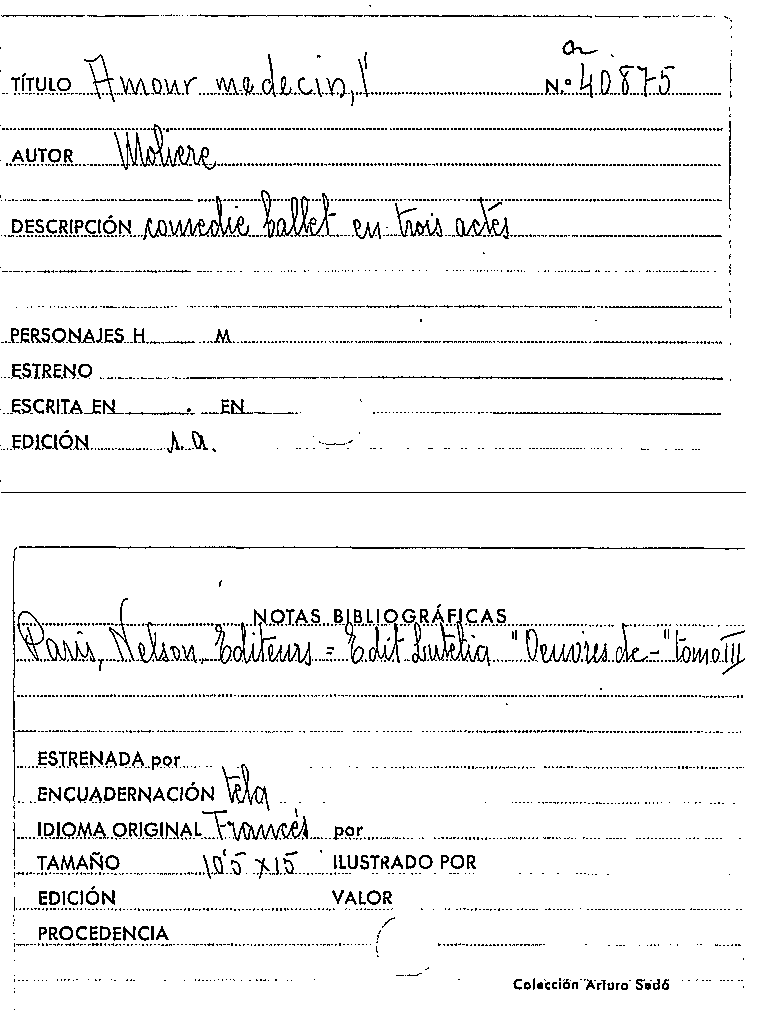 a
TÍTULO Amour medecin, l' N.º 40875
AUTOR Moliere
DESCRIPCIÓN comedie ballet en trois actes
PERSONAJES H M
ESTRENO
ESCRITA EN . EN
EDICIÓN s.a.
NOTAS BIBLIOGRÁFICAS
Paris, Nelson, Editeurs = Edit Lutetia "Oeuvres de-" tomo III
ESTRENADA por
ENCUADERNACIÓN tela
IDIOMA ORIGINAL Francés por
TAMAÑO 10'5 x 15 ILUSTRADO POR
EDICIÓN VALOR
PROCEDENCIA
Colección Arturo Sedó